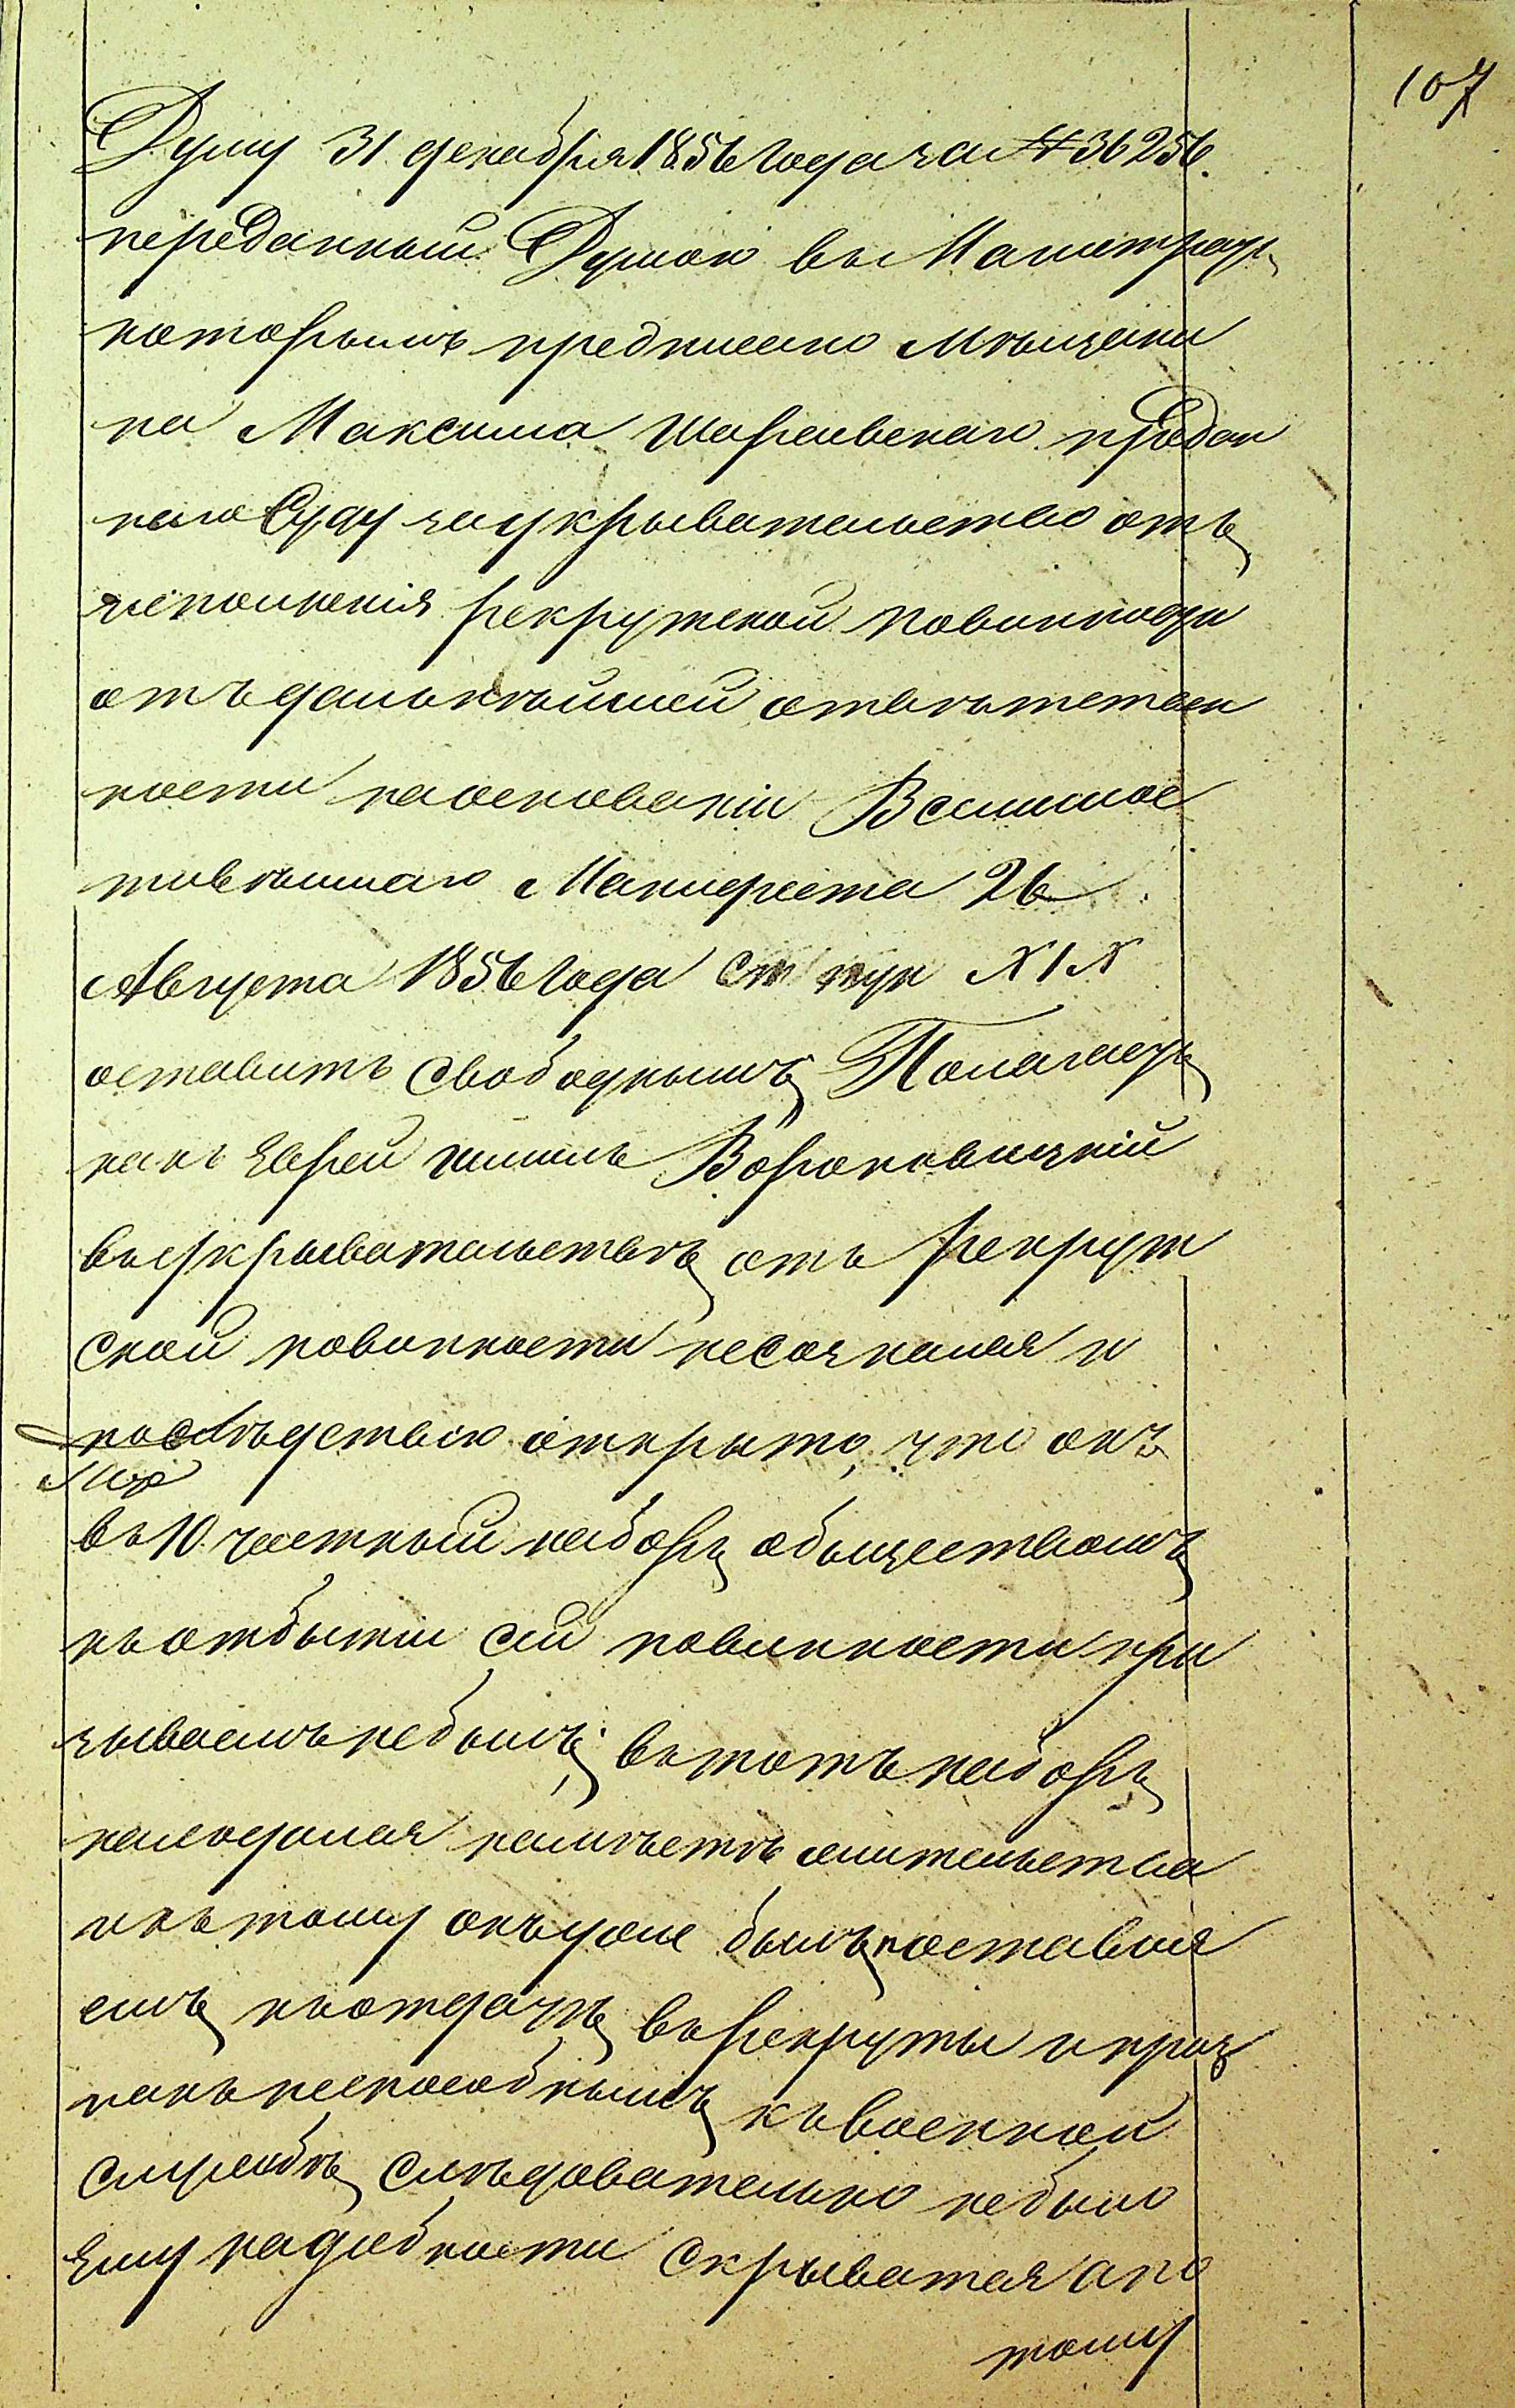 107
Думу 31 декабря 1856 года за № 36256.
переданный Думою въ Магистратъ
которымъ предписано Мѣщани
на Максима Шараевскаго предан
наго Суду заукрывательство отъ
исполненія рекрутской повинности
отъ дальнѣйшей отвѣтствен
ности наоснованіи Всемилос
тивѣйшаго Манифеста 26
Августа 1856 года ст пун XIX
оставить свободнымъ, Полагаетъ
какъ Еврей Шмиль Вороновицкій
въ укрывательствѣ отъ рекрут
ской повинности несознался и
послѣдствію открыто, что онъ
въ 10 частный наборъ обществомъ
къ отбытію сей повинности при
зываемъ небылъ, въ тотъ наборъ
находился намѣстѣ жительства
и къ тому онъ уже былъ поставля
емъ къ отдачѣ въ рекруты и приз
нанъ неспособнымъ къ военной
службѣ, слѣдовательно небыло
Ему надобности скрыватся апо
тому